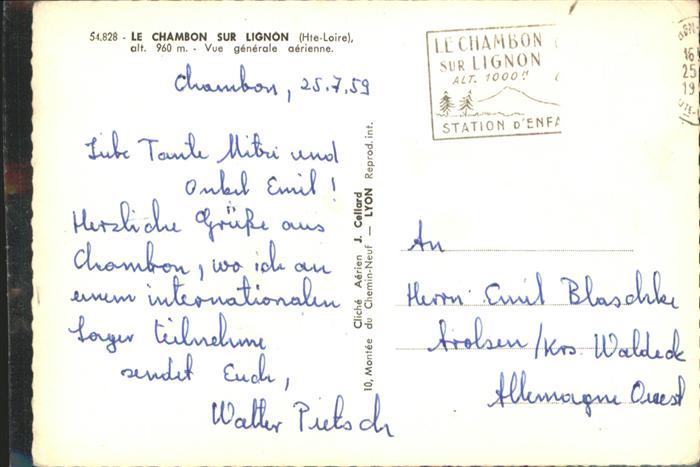 54.828 - LE CHAMBON SUR LIGNON (Hte-Loire),
alt. 960 m. - Vue générale aérienne.
Chambon, 25.7.59
Liebe Tante Mitzi und
Onkel Emil!
Herzliche Grüße aus
Chambon, wo ich an
einem internationalen
Lager teilnehme
sendet Euch,
Walter Pietsch
Cliché Aérien J. Cellard
10, Montée du Chemin-Neuf — LYON Reprod. int.
LE CHAMBON
SUR LIGNON
ALT. 1000 m
STATION D'ENFA
16
25
19
An
Herrn Emil Blaschke
Arolsen/Krs. Waldeck
Allemagne Ouest